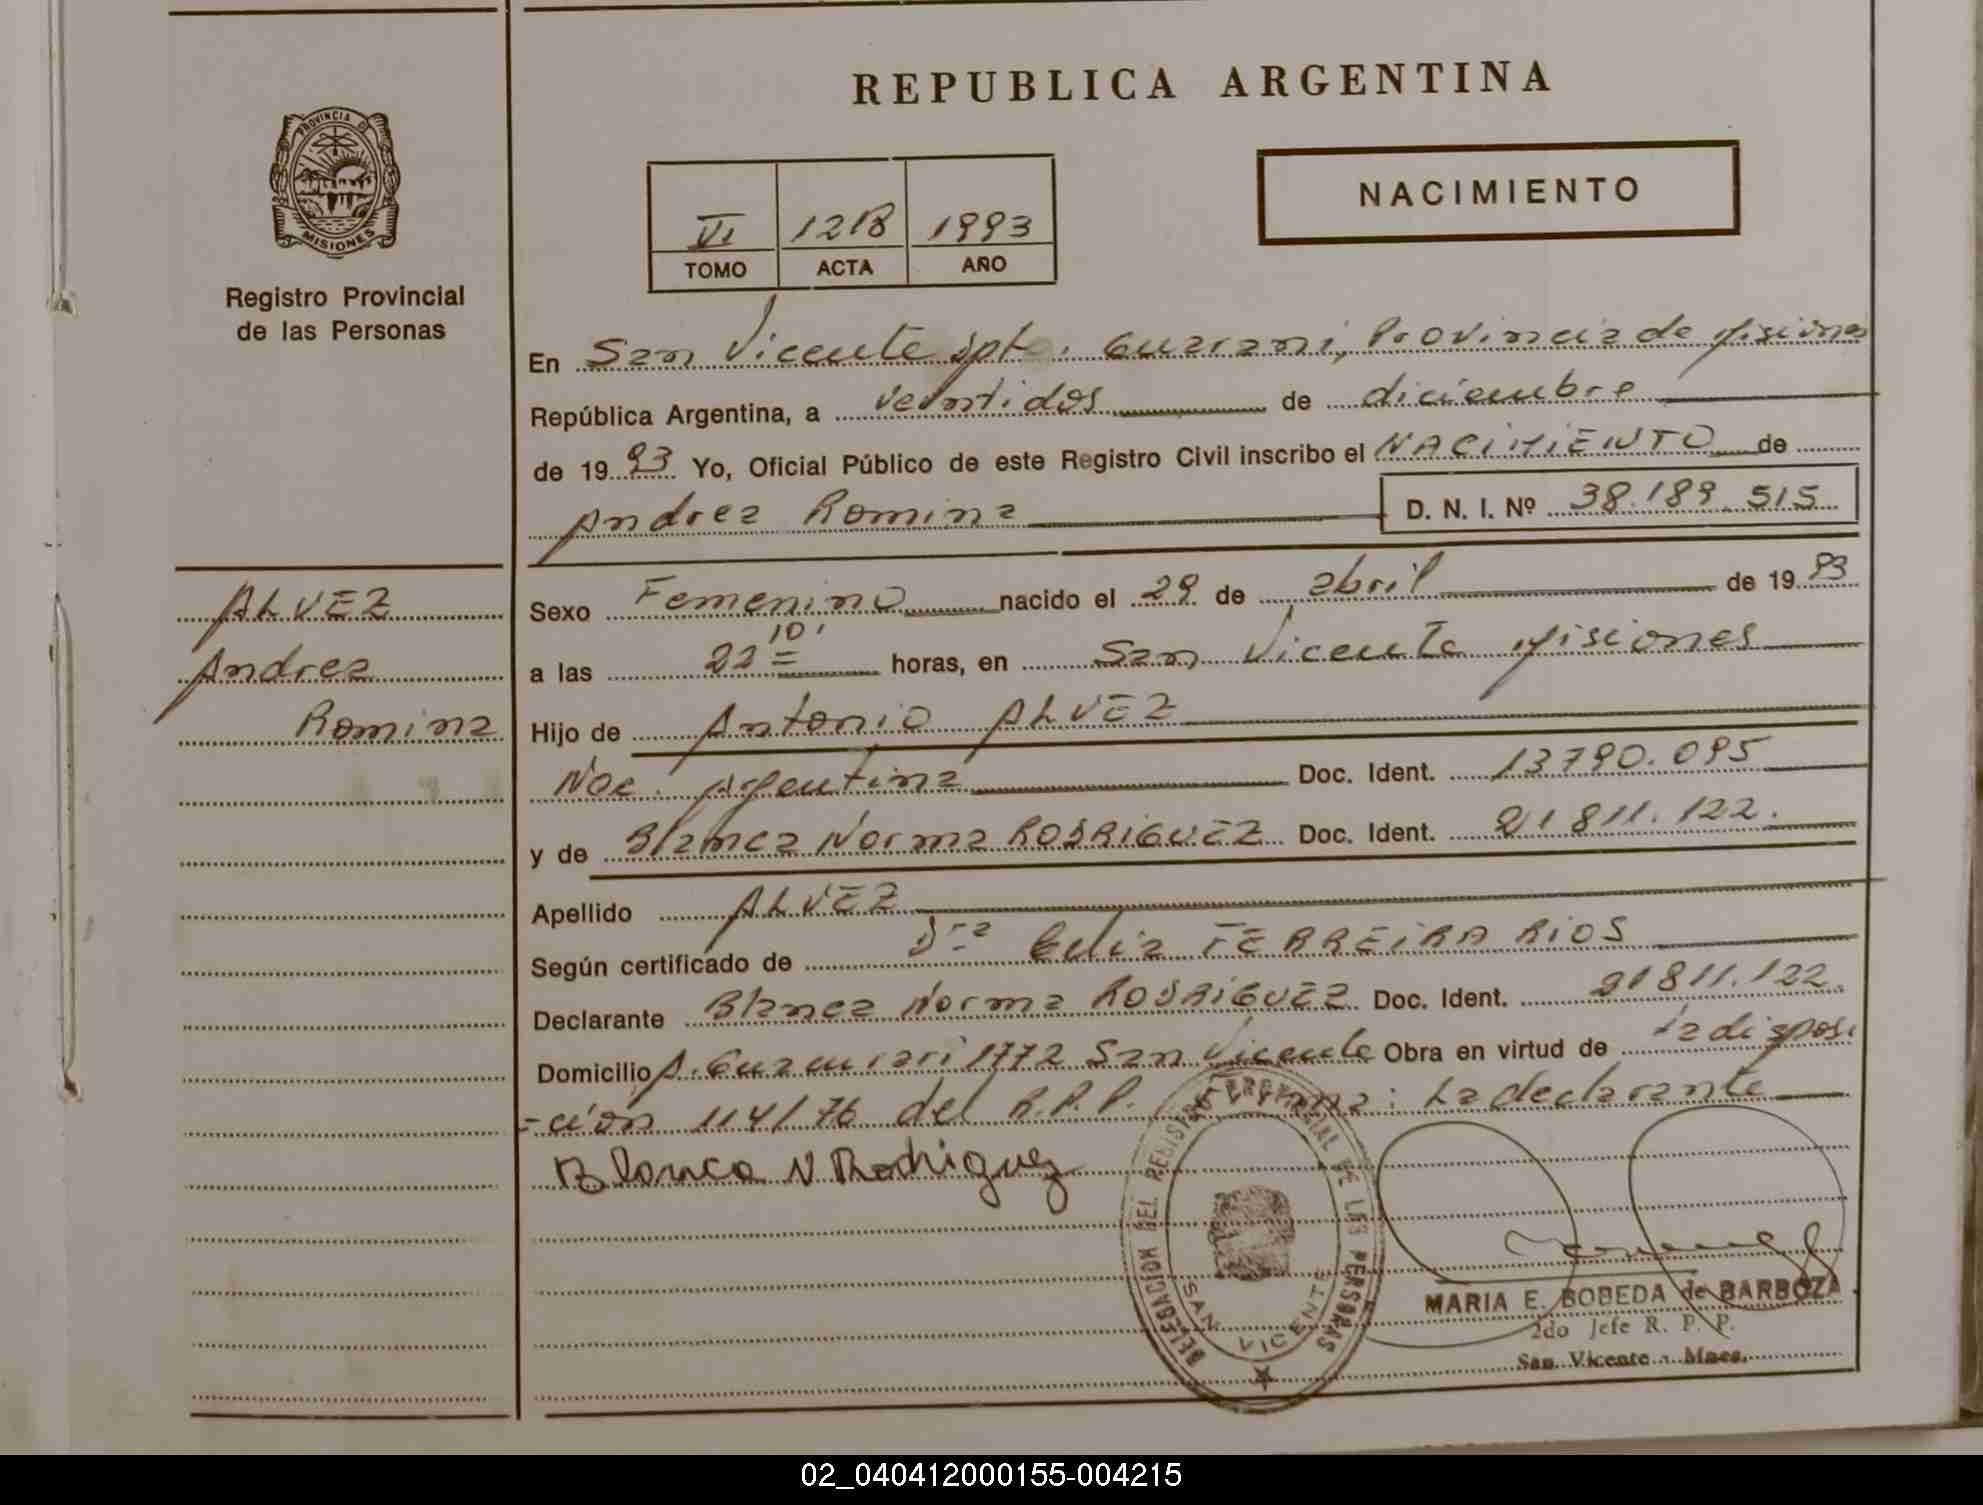 REPUBLICA ARGENTINA
PROVINCIA DE
MISIONES
Registro Provincial
de las Personas
NACIMIENTO
VI 1218 1993
TOMO ACTA AÑO
En San Vicente Dpto. Guarani, Provincia de Misiones
República Argentina, a veintidos de diciembre
de 1993 Yo, Oficial Público de este Registro Civil inscribo el NACIMIENTO de
Andrea Romina D. N. I. Nº 38.189.515
ALVEZ
Andrea
Romina
Sexo Femenino nacido el 29 de abril de 1993
a las 22 10' horas, en San Vicente Misiones
Hijo de Antonio ALVEZ
Nac. Argentina Doc. Ident. 13790.095
y de Blanca Norma RODRIGUEZ Doc. Ident. 21811.122.
Apellido ALVEZ
Según certificado de Dra Celia FERREIRA RIOS
Declarante Blanca Norma RODRIGUEZ Doc. Ident. 21811.122.
Domicilio A. Guacurari 1772 San Vicente Obra en virtud de la disposi
-ción 114/76 del R.P.P. Firma: La declarante
Blanca N Rodriguez
DELEGACION DEL REGISTRO PROVINCIAL DE LAS PERSONAS
SAN VICENTE
MARIA E. BOBEDA de BARBOZA
2do Jefe R. P. P.
San Vicente - Mnes.
02_040412000155-004215